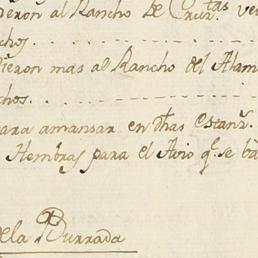 eron al Rancho de Cruz.tas ve
chos.
ieron mas al Rancho del Alam
chos.
ara amansar en dhas Estanz.
Hembras para el Avio q.e se ba
ela Burrada